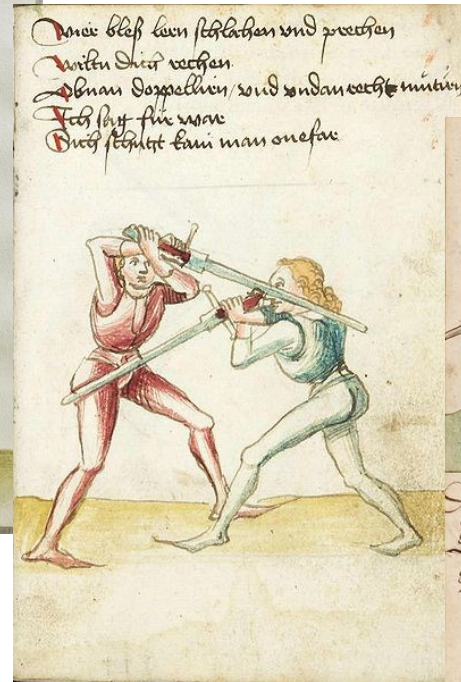 vier bleß lern schlachen vnd prechen
wiltu dich rechen
Obnan doppellirn / vnd vndan recht mutirn
Ich sag für war
Sich schützt kain man one far